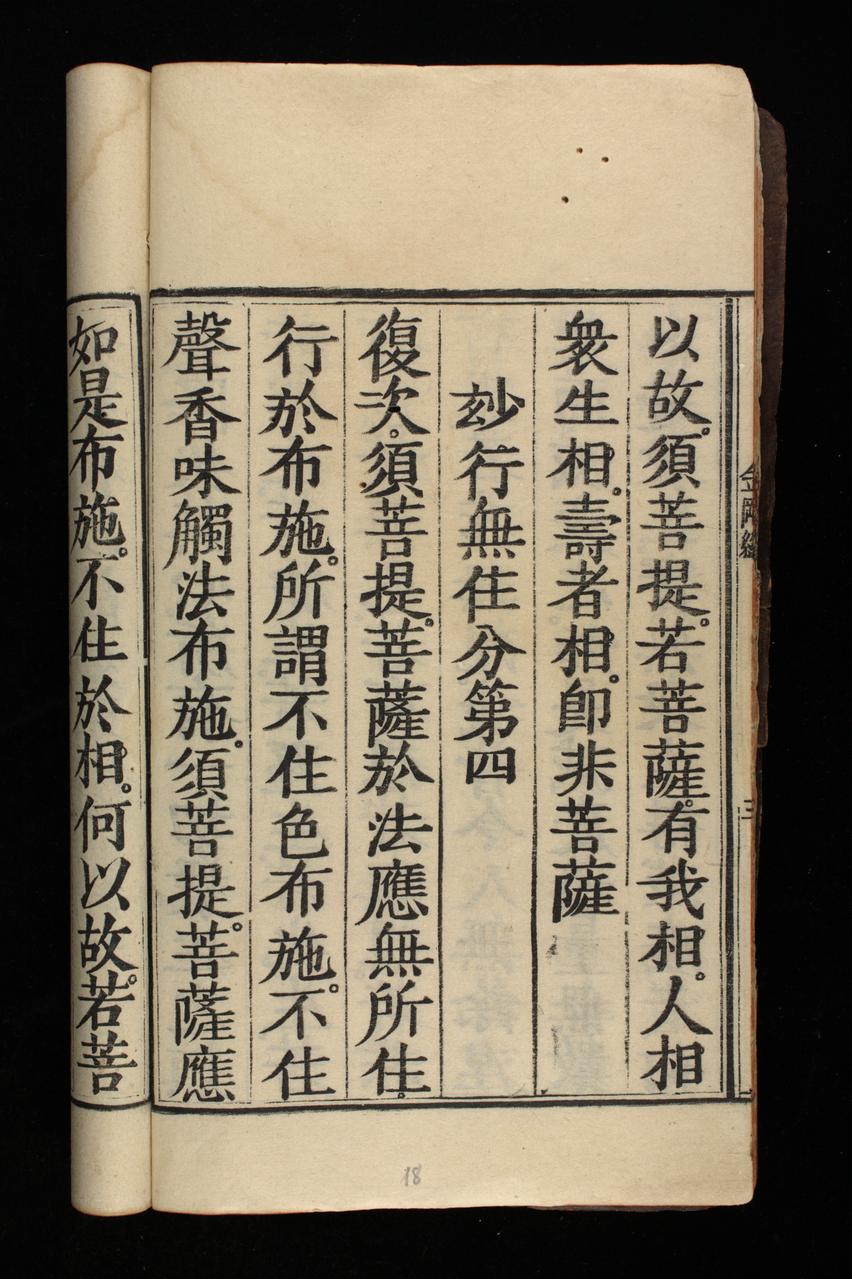 以故。須菩提。若菩薩。有我相。人相
衆生相。壽者相。卽非菩薩
玅行無住分第四
復次。須菩提。菩薩於法應無所住。
行於布施。所謂不住色布施。不住
聲香味觸法布施。須菩提。菩薩應
如是布施。不住於相。何以故。若菩
金剛經
三
18